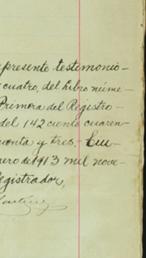 presente testimonio-
cuatro, del libro núme-
Primera del Registro-
del 142 ciento cuaren-
cuenta y tres.- Lui
ero de 1913 mil nove-
egistrador,